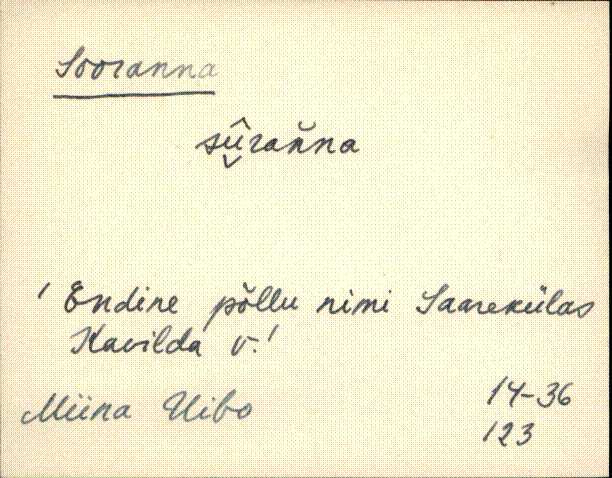 Sooranna
sûraňna
' Endine põllu nimi Saarekülas
Kavilda v.'
Miina Uibo
14-36
123